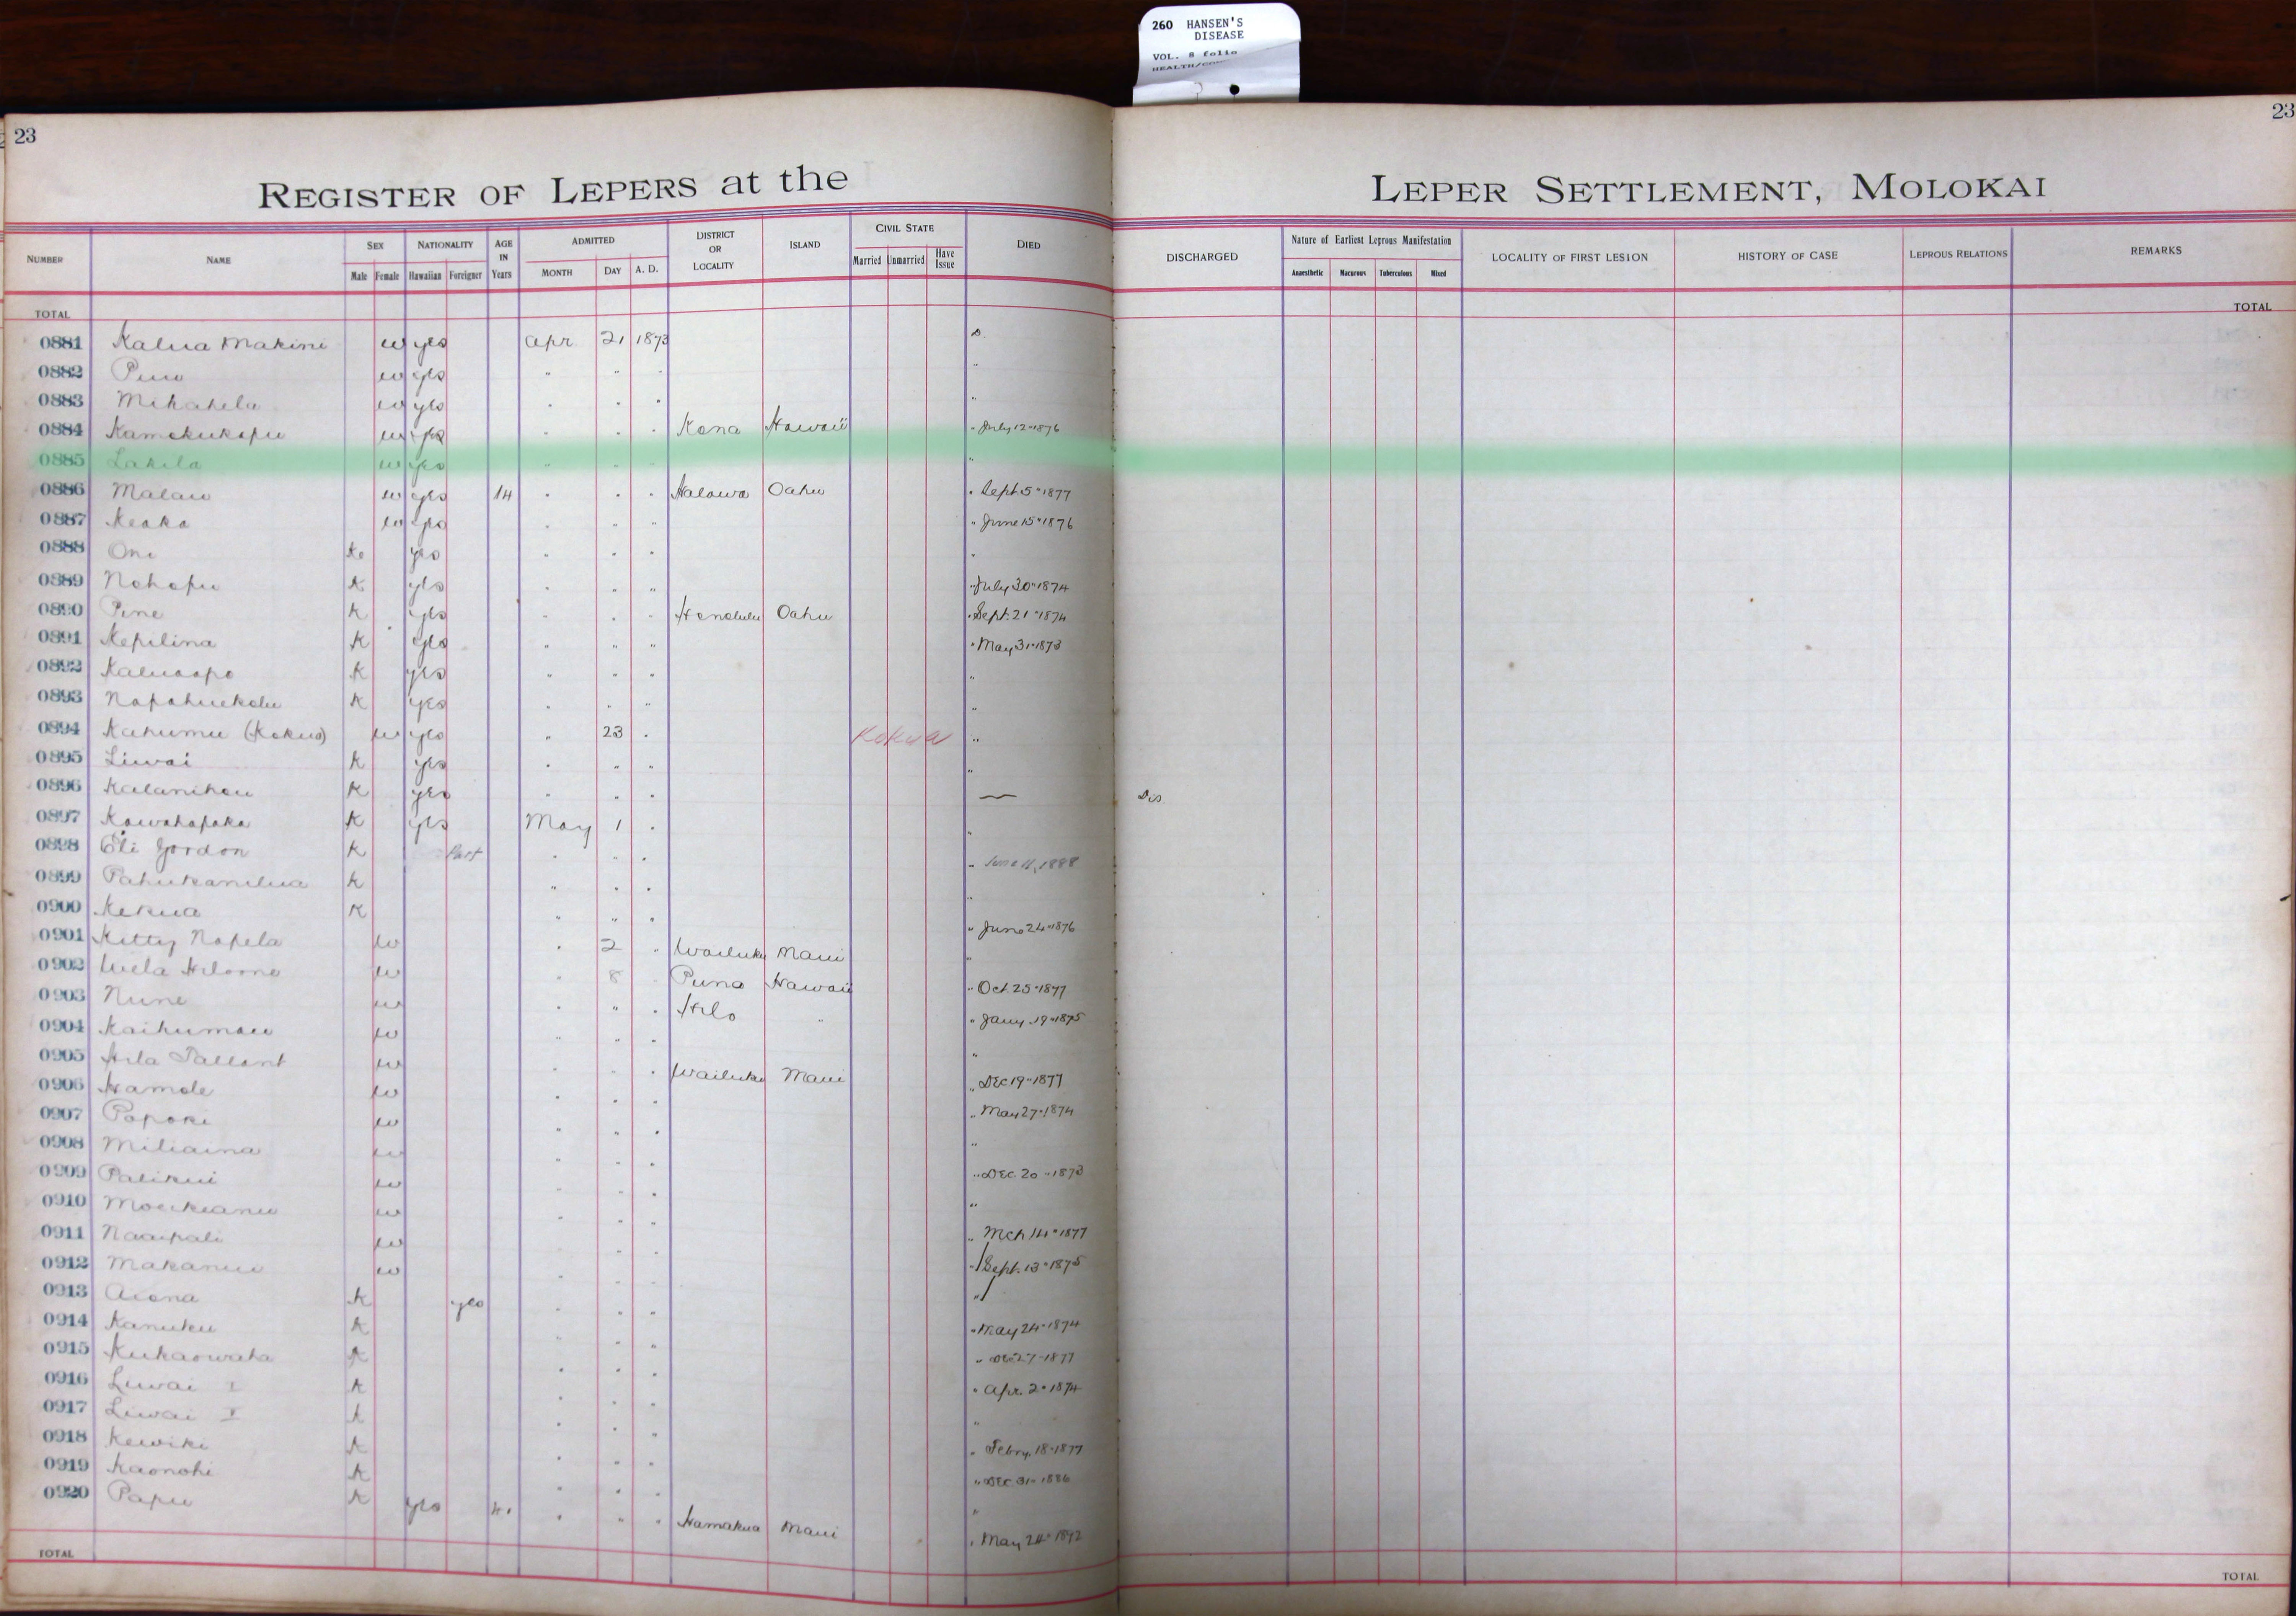 260 HANSEN'S
DISEASE
VOL. 8 folio
23
23
REGISTER OF LEPERS at the LEPER SETTLEMENT, MOLOKAI
NUMBER NAME SEX NATIONALITY AGE IN Years ADMITTED DISTRICT OR LOCALITY ISLAND CIVIL STATE DIED DISCHARGED Nature of Earliest Leprous Manifestation LOCALITY OF FIRST LESION HISTORY OF CASE LEPROUS RELATIONS REMARKS
Male Female Hawaiian Foreigner MONTH DAY A. D. Married Unmarried Have Issue Anaesthetic Macurous Tuberculous Mixed
TOTAL TOTAL
0881 Kalua Makini w yes Apr 21 1873 D.
0882 w yes " " " "
0883 Mikahela w yes " " " "
0884 Kamokukapu w yes " " " Kona Hawaii " July 12" 1876
0885 Lakila w yes " " " "
0886 Malau w yes 14 " " " Halawa Oahu " Sept. 5" 1877
0887 Keaka w yes " " " " June 15" 1876
0888 K yes " " " "
0889 Nohopu K yes " " " " July 30" 1874
0890 Pine K yes " " " Honolulu Oahu " Sept. 21" 1874
0891 Kepilina K yes " " " " May 31" 1873
0892 K yes " " " "
0893 Napahuekolu K yes " " " "
0894 Kahumu (Kokua) w yes " 23 " Kokua "
0895 Liwai K yes " " " "
0896 Kalanihou K yes " " " — Dis
0897 Kawahapaka K yes May 1 " "
0898 Eli Gordon K Part " " " " June 11, 1888
0899 Pahukanilua K " " " "
0900 Kekua K " " " " June 24" 1876
0901 Kitty Napela w " 2 " Wailuku Maui "
0902 w " 8 " Puna Hawaii " Oct. 25" 1877
0903 Nune w " " " Hilo " " Jany. 19" 1875
0904 Kaihumau w " " " "
0905 Hila Tallant w " " " Wailuku Maui " Dec 19" 1877
0906 Hamole w " " " " May 27" 1874
0907 Papoki w " " " "
0908 Miliaina w " " " " Dec. 20" 1873
0909 Palikui w " " " "
0910 Moeikeanu w " " " " Mch 14" 1877
0911 Naaipali w " " " " Sept. 13" 1875
0912 Makanui w " " " "
0913 Aiona K yes " " " " May 24" 1874
0914 Kanuku K " " " " Dec 27" 1877
0915 Kukaowaha K " " " " Apr. 2" 1874
0916 Liwai I K " " " "
0917 Liwai K " " " " Febry. 18" 1877
0918 Kewiki K " " " " Dec 31" 1886
0919 Kaonohi K " " " "
0920 Papu K yes " " " Hamakua Maui " May 24" 1892
TOTAL TOTAL